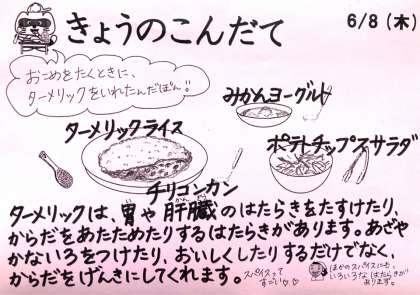 きょうのこんだて
6/8(木)
おこめをたくときに、
ターメリックをいれたんだぽん!!
みかんヨーグルト
ターメリックライス
ポテトチップスサラダ
チリコンカン
ターメリックは、胃や肝臓のはたらきをたすけたり、
からだをあたためたりするはたらきがあります。あざや
かないろをつけたり、おいしくしたりするだけでなく、
からだをげんきにしてくれます。
スパイスって
すごい♡♡
ほかのスパイスにも、
いろいろなはたらきが
あります。